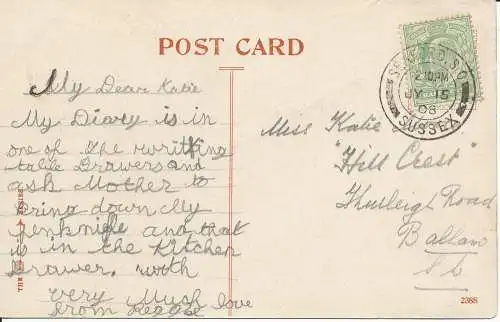 POST CARD
My Dear Katie
My Diary is in
one of the writting
table Drawers and
ask Mother to
bring down My
penknife and that
is in the Kitchen
Drawer. with
very Much love
from Reggie
Miss Katie
"Hill Crest"
Thurleigh Road
Balham
S.O
2.10PM
JY 15
08
SUSSEX
2388